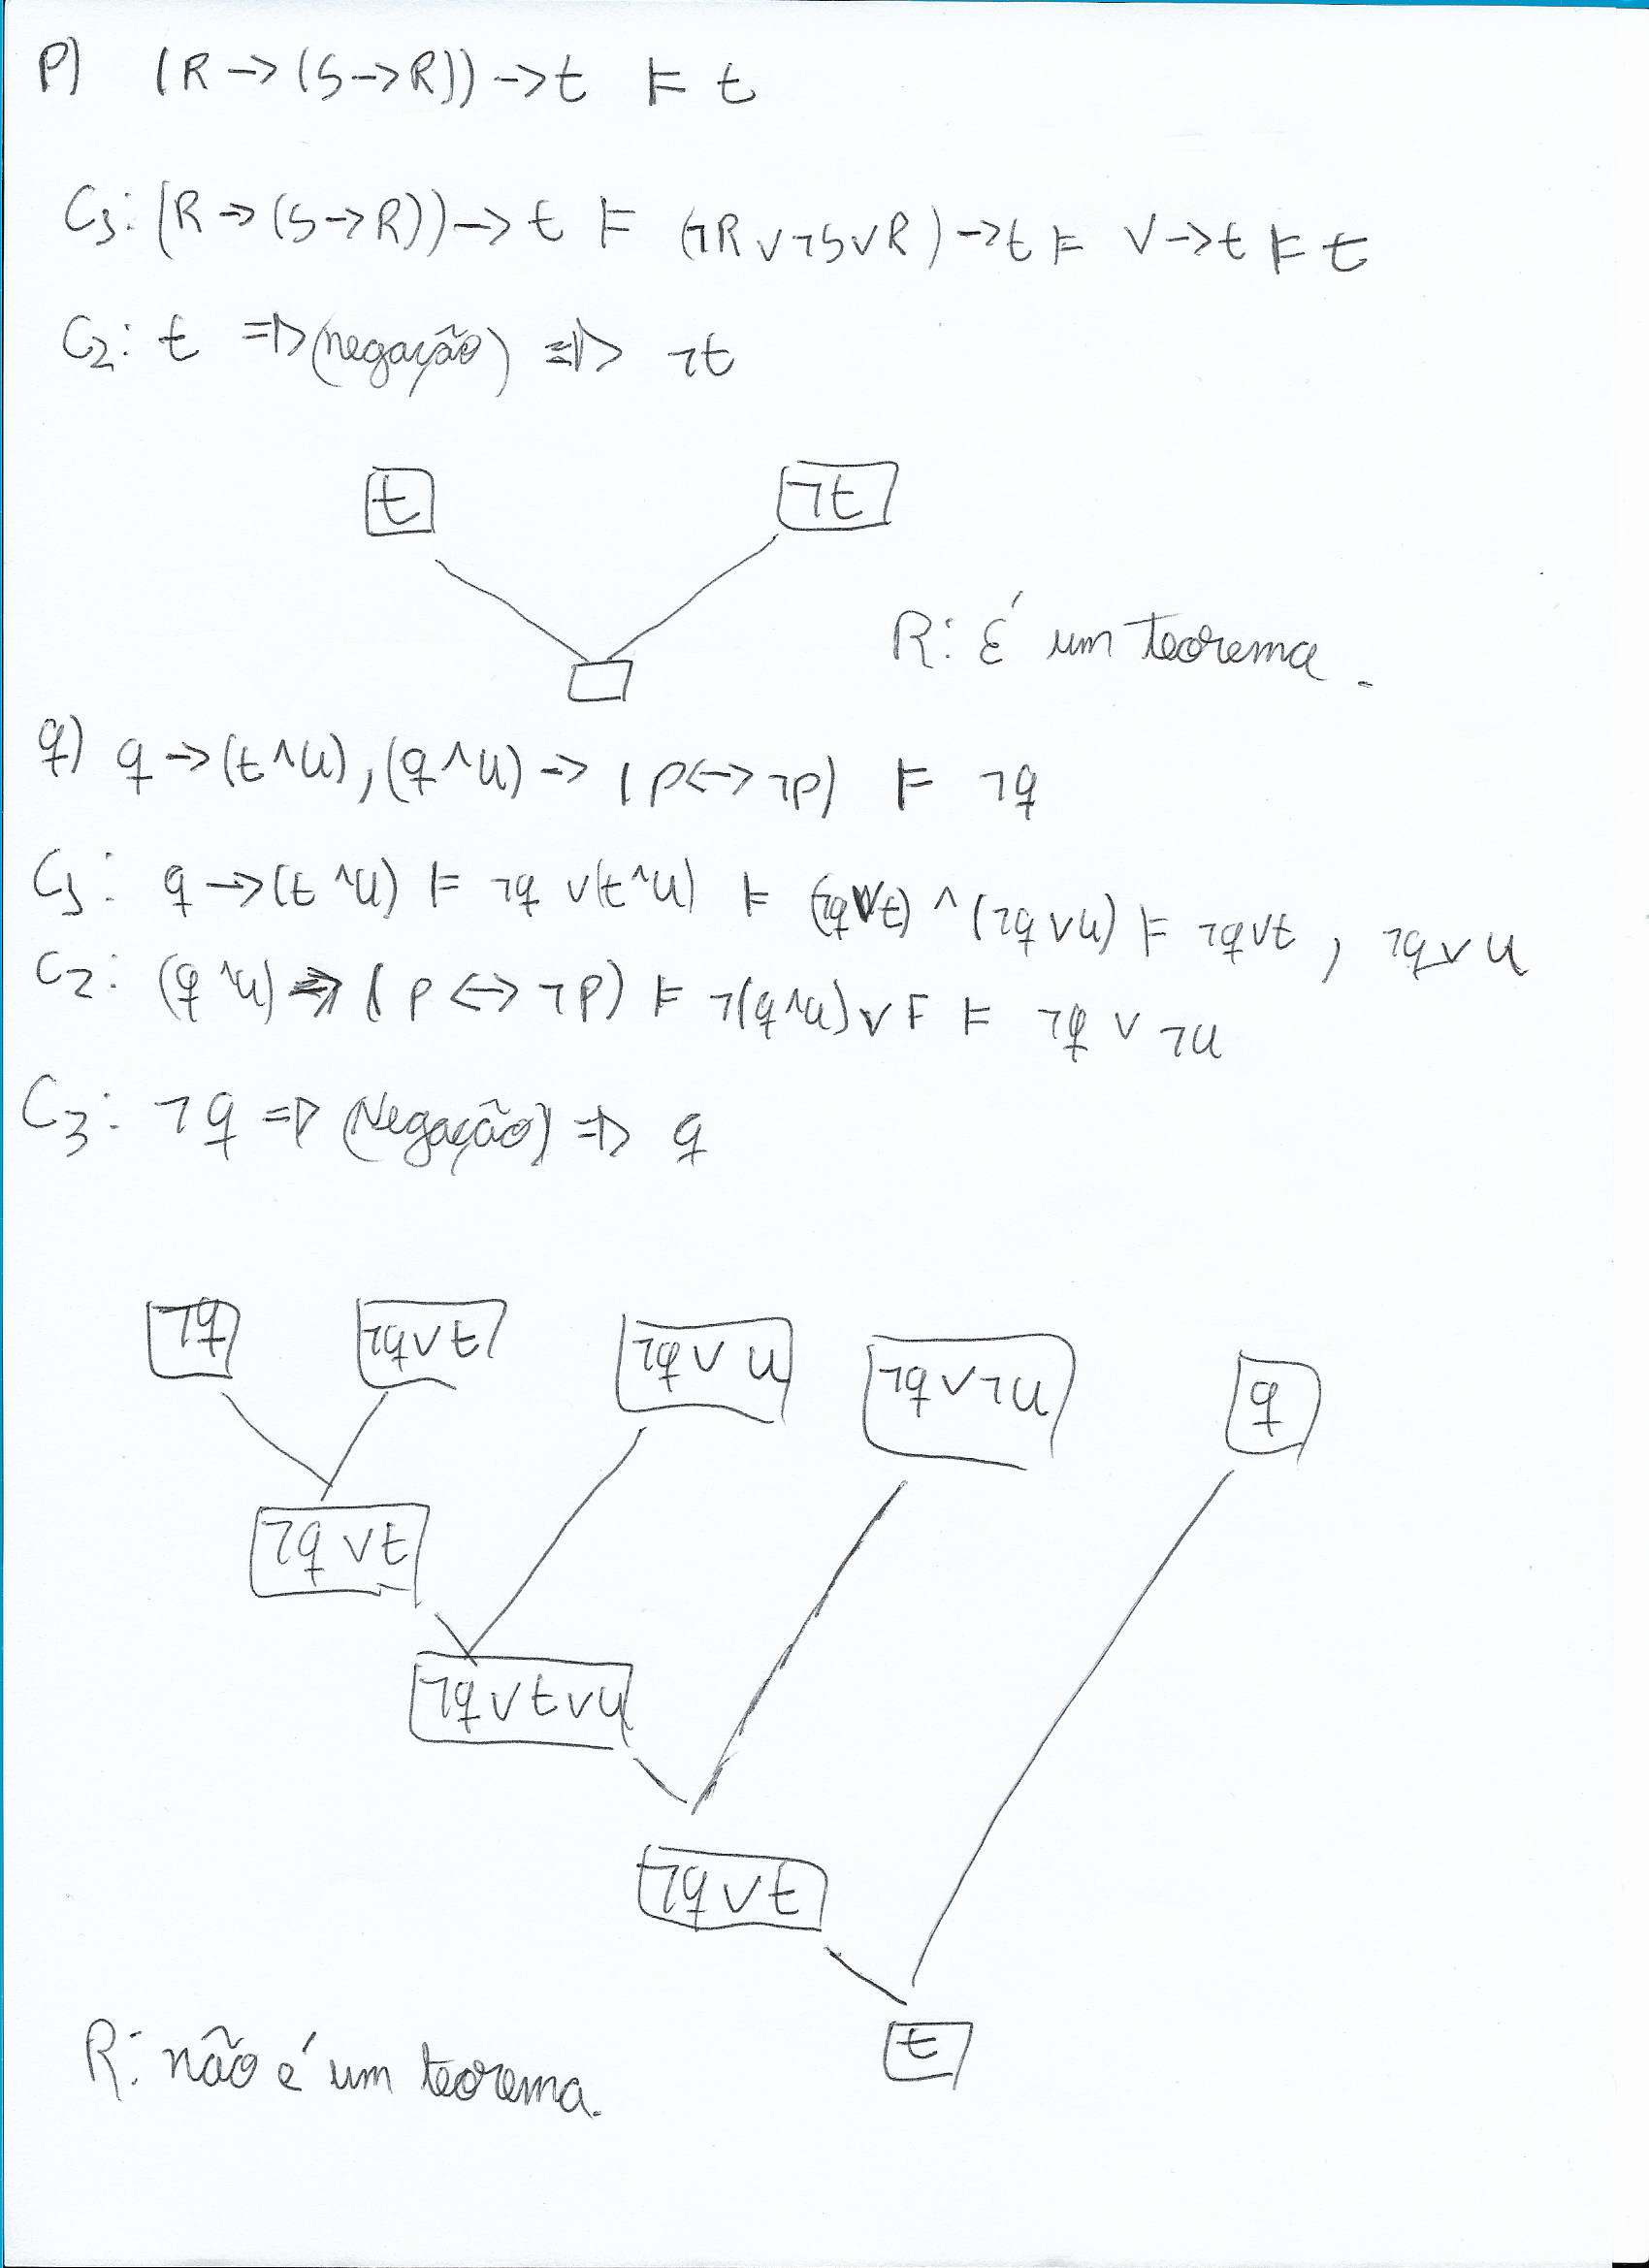 P) (R -> (S->R)) -> t ⊨ t
C1: (R -> (S->R)) -> t ⊨ (¬R ∨ ¬S ∨ R) -> t ⊨ V -> t ⊨ t
C2: t => (negação) => ¬t
t ¬t
R: É um teorema.
q) q -> (t ^ u), (q ^ u) -> (p <-> ¬p) ⊨ ¬q
C1: q -> (t ^ u) ⊨ ¬q ∨ (t ^ u) ⊨ (¬q ∨ t) ^ (¬q ∨ u) ⊨ ¬q ∨ t, ¬q ∨ u
C2: (q ^ u) -> (p <-> ¬p) ⊨ ¬(q ^ u) ∨ F ⊨ ¬q ∨ ¬u
C3: ¬q => (Negação) => q
¬q ¬q ∨ t ¬q ∨ u ¬q ∨ ¬u q
¬q ∨ t
¬q ∨ t ∨ u
¬q ∨ t
t
R: não é um teorema.